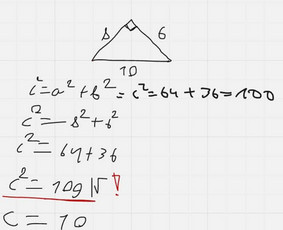 8 6
10
c² = a² + b² = c² = 64 + 36 = 100
c² = 8² + 6²
c² = 64 + 36
c² = 100 |√ !
c = 10